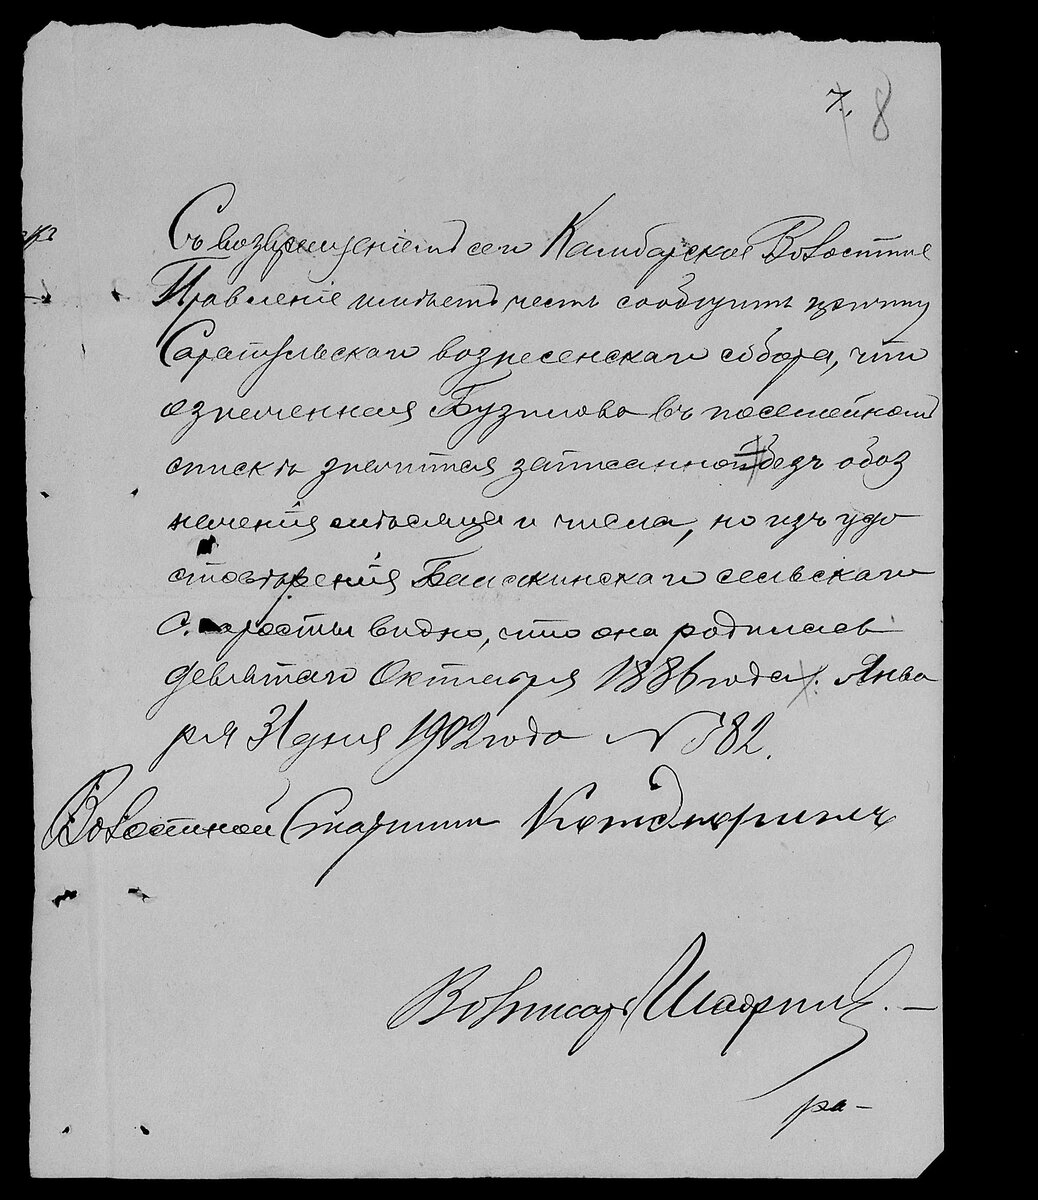 7. 8
Съ возвращеніемъ сего Камбарское Волостное
Правленіе имѣетъ честь сообщить причту
Сарапульскаго вознесенскаго собора, что
означенная Бузмакова въ посемейномъ
спискѣ значится записанной безъ обоз
наченія мѣсяца и числа, но изъ удо
стовѣренія Балакинскаго сельскаго
старосты видно, что она родилась
девятаго Октября 1886 года. Янва
ря 31 дня 1902 года № 382.
Волостной Старшина
Волписарь
ра-